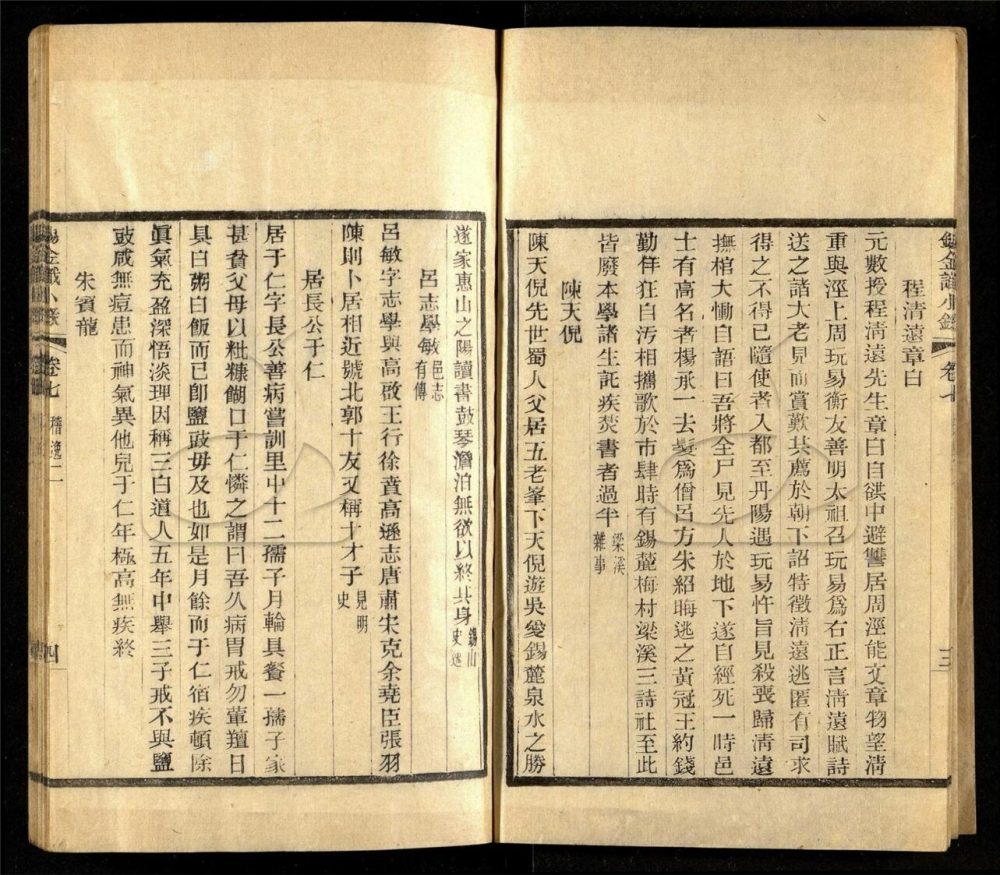 錫金識小錄 卷七 三
程清遠章白
元數授程清遠先生章白自鉷中避讐居周涇能文章物望清
重與涇上周玩易衡友善明太祖召玩易爲右正言清遠賦詩
送之諸大老見而賞歎共薦於朝下詔特徵清遠逃匿有司求
得之不得已隨使者入都至丹陽遇玩易忤旨見殺喪歸清遠
撫棺大慟自語曰吾將全尸見先人於地下遂自經死一時邑
士有高名者楊承一去髮爲僧呂方朱紹晦逃之黃冠王約錢
勤佯狂自汚相攜歌於市肆時有錫麓梅村梁溪三詩社至此
皆廢本學諸生託疾焚書者過半 梁溪
雜事
陳天倪
陳天倪先世蜀人父居五老峯下天倪遊吳愛錫麓泉水之勝
遂家惠山之陽讀書鼓琴澹泊無欲以終其身 錫山
史逸
呂志學敏 邑志
有傳
呂敏字志學與高啟王行徐賁高遜志唐肅宋克余堯臣張羽
陳則卜居相近號北郭十友又稱十才子 見明
史
居長公于仁
居于仁字長公善病嘗訓里中十二孺子月輪具餐一孺子家
甚貧父母以粃糠餬口于仁憐之謂曰吾久病胃戒勿葷羶日
具白粥白飯而已卽鹽豉毋及也如是月餘而于仁宿疾頓除
眞氣充盈深悟淡理因稱三白道人五年中舉三子戒不與鹽
豉咸無痘患而神氣異他兒于仁年極高無疾終
朱賓龍
錫金識小錄 卷七 稽逸二 四